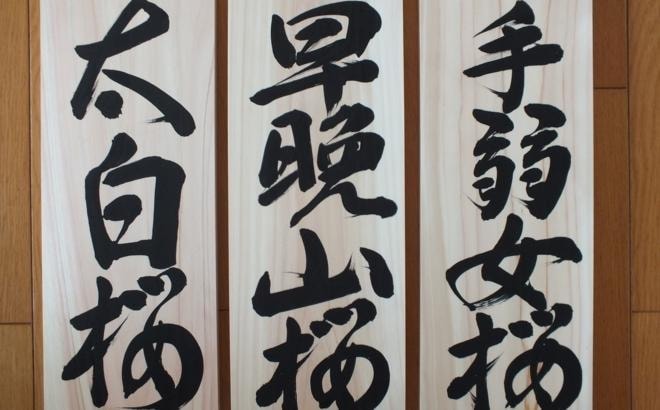 手弱女桜
早晩山桜
太白桜